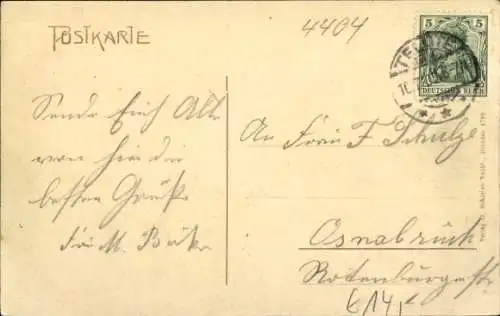 POSTKARTE
4404
5 5
DEUTSCHES REICH
Sende Euch Allen
von hier die
besten Grüße
An Frau F. Schulze
Osnabrück
Rotenburgerstr.
614,-